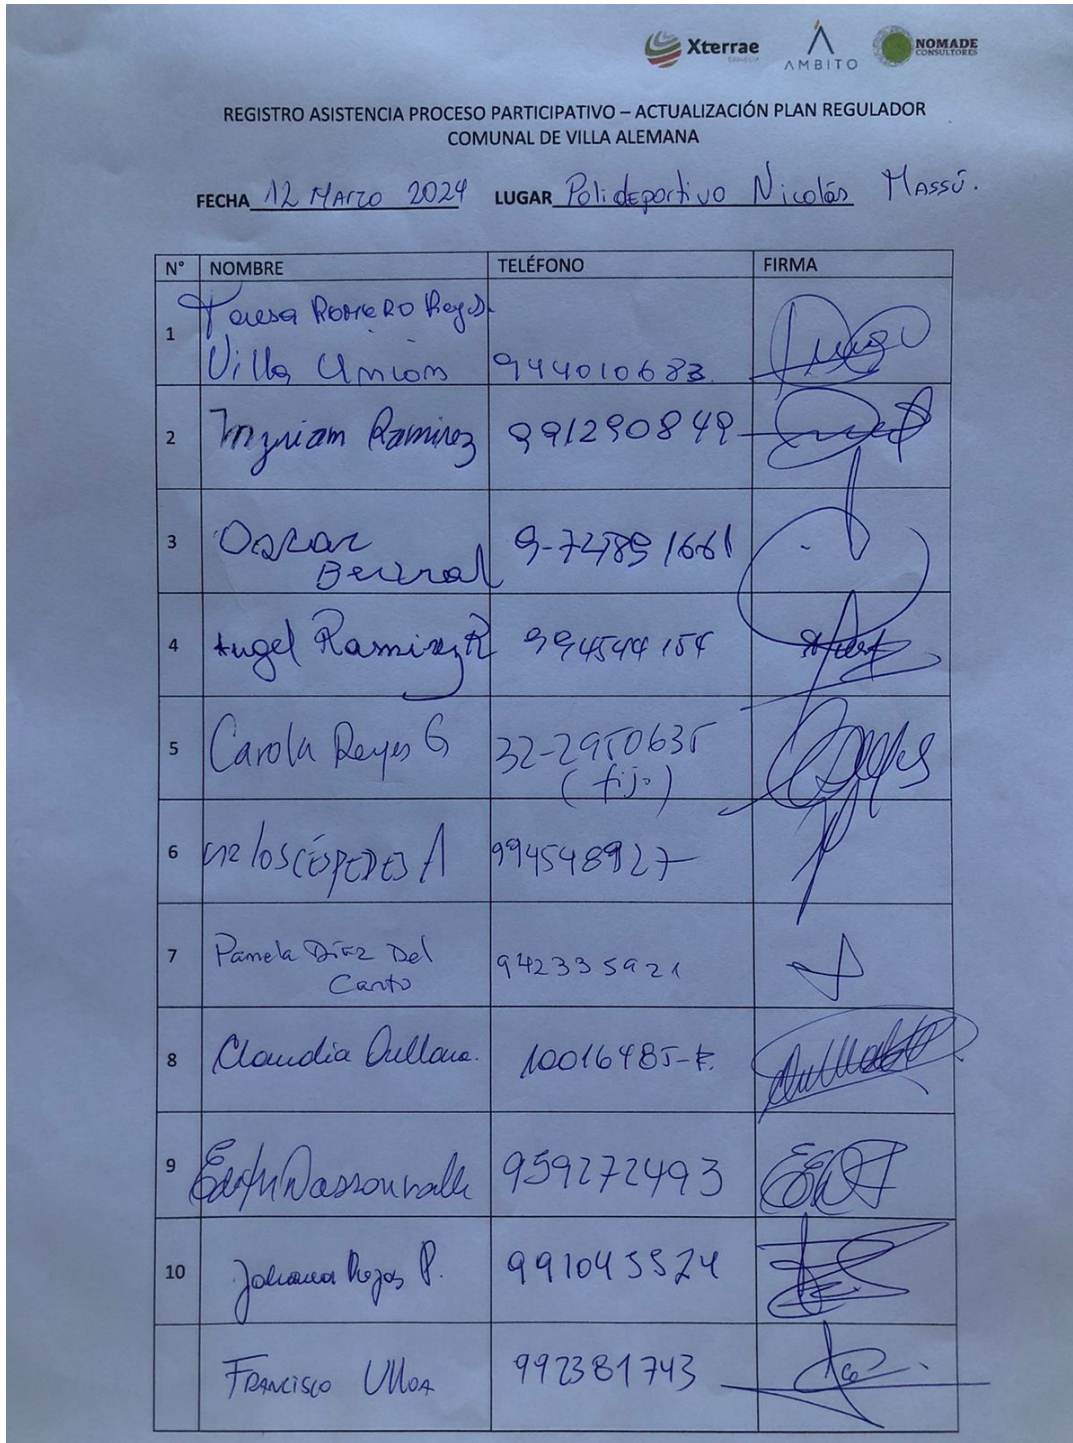 Xterrae
AMBITO
NOMADE
CONSULTORES
REGISTRO ASISTENCIA PROCESO PARTICIPATIVO – ACTUALIZACIÓN PLAN REGULADOR
COMUNAL DE VILLA ALEMANA
FECHA 12 Marzo 2024 LUGAR Polideportivo Nicolás Massú.
N° NOMBRE TELÉFONO FIRMA
1 Teresa Romero Reyes.
Villa Unión 944010683
2 Myriam Ramirez 991290849
3 Oscar
Bernal
4 Angel Ramirez R 994544154
5 Carola Reyes G 32-2950635
(fijo)
6 Carlos CÉSPEDES A 994548927
7 Pamela Díaz Del
Canto 942335921
8 Claudia Orellana. 10016485-K.
9 Edith 959272493
10 Johana Rojas P. 991045524
FRANCISCO Ulloa 992381743